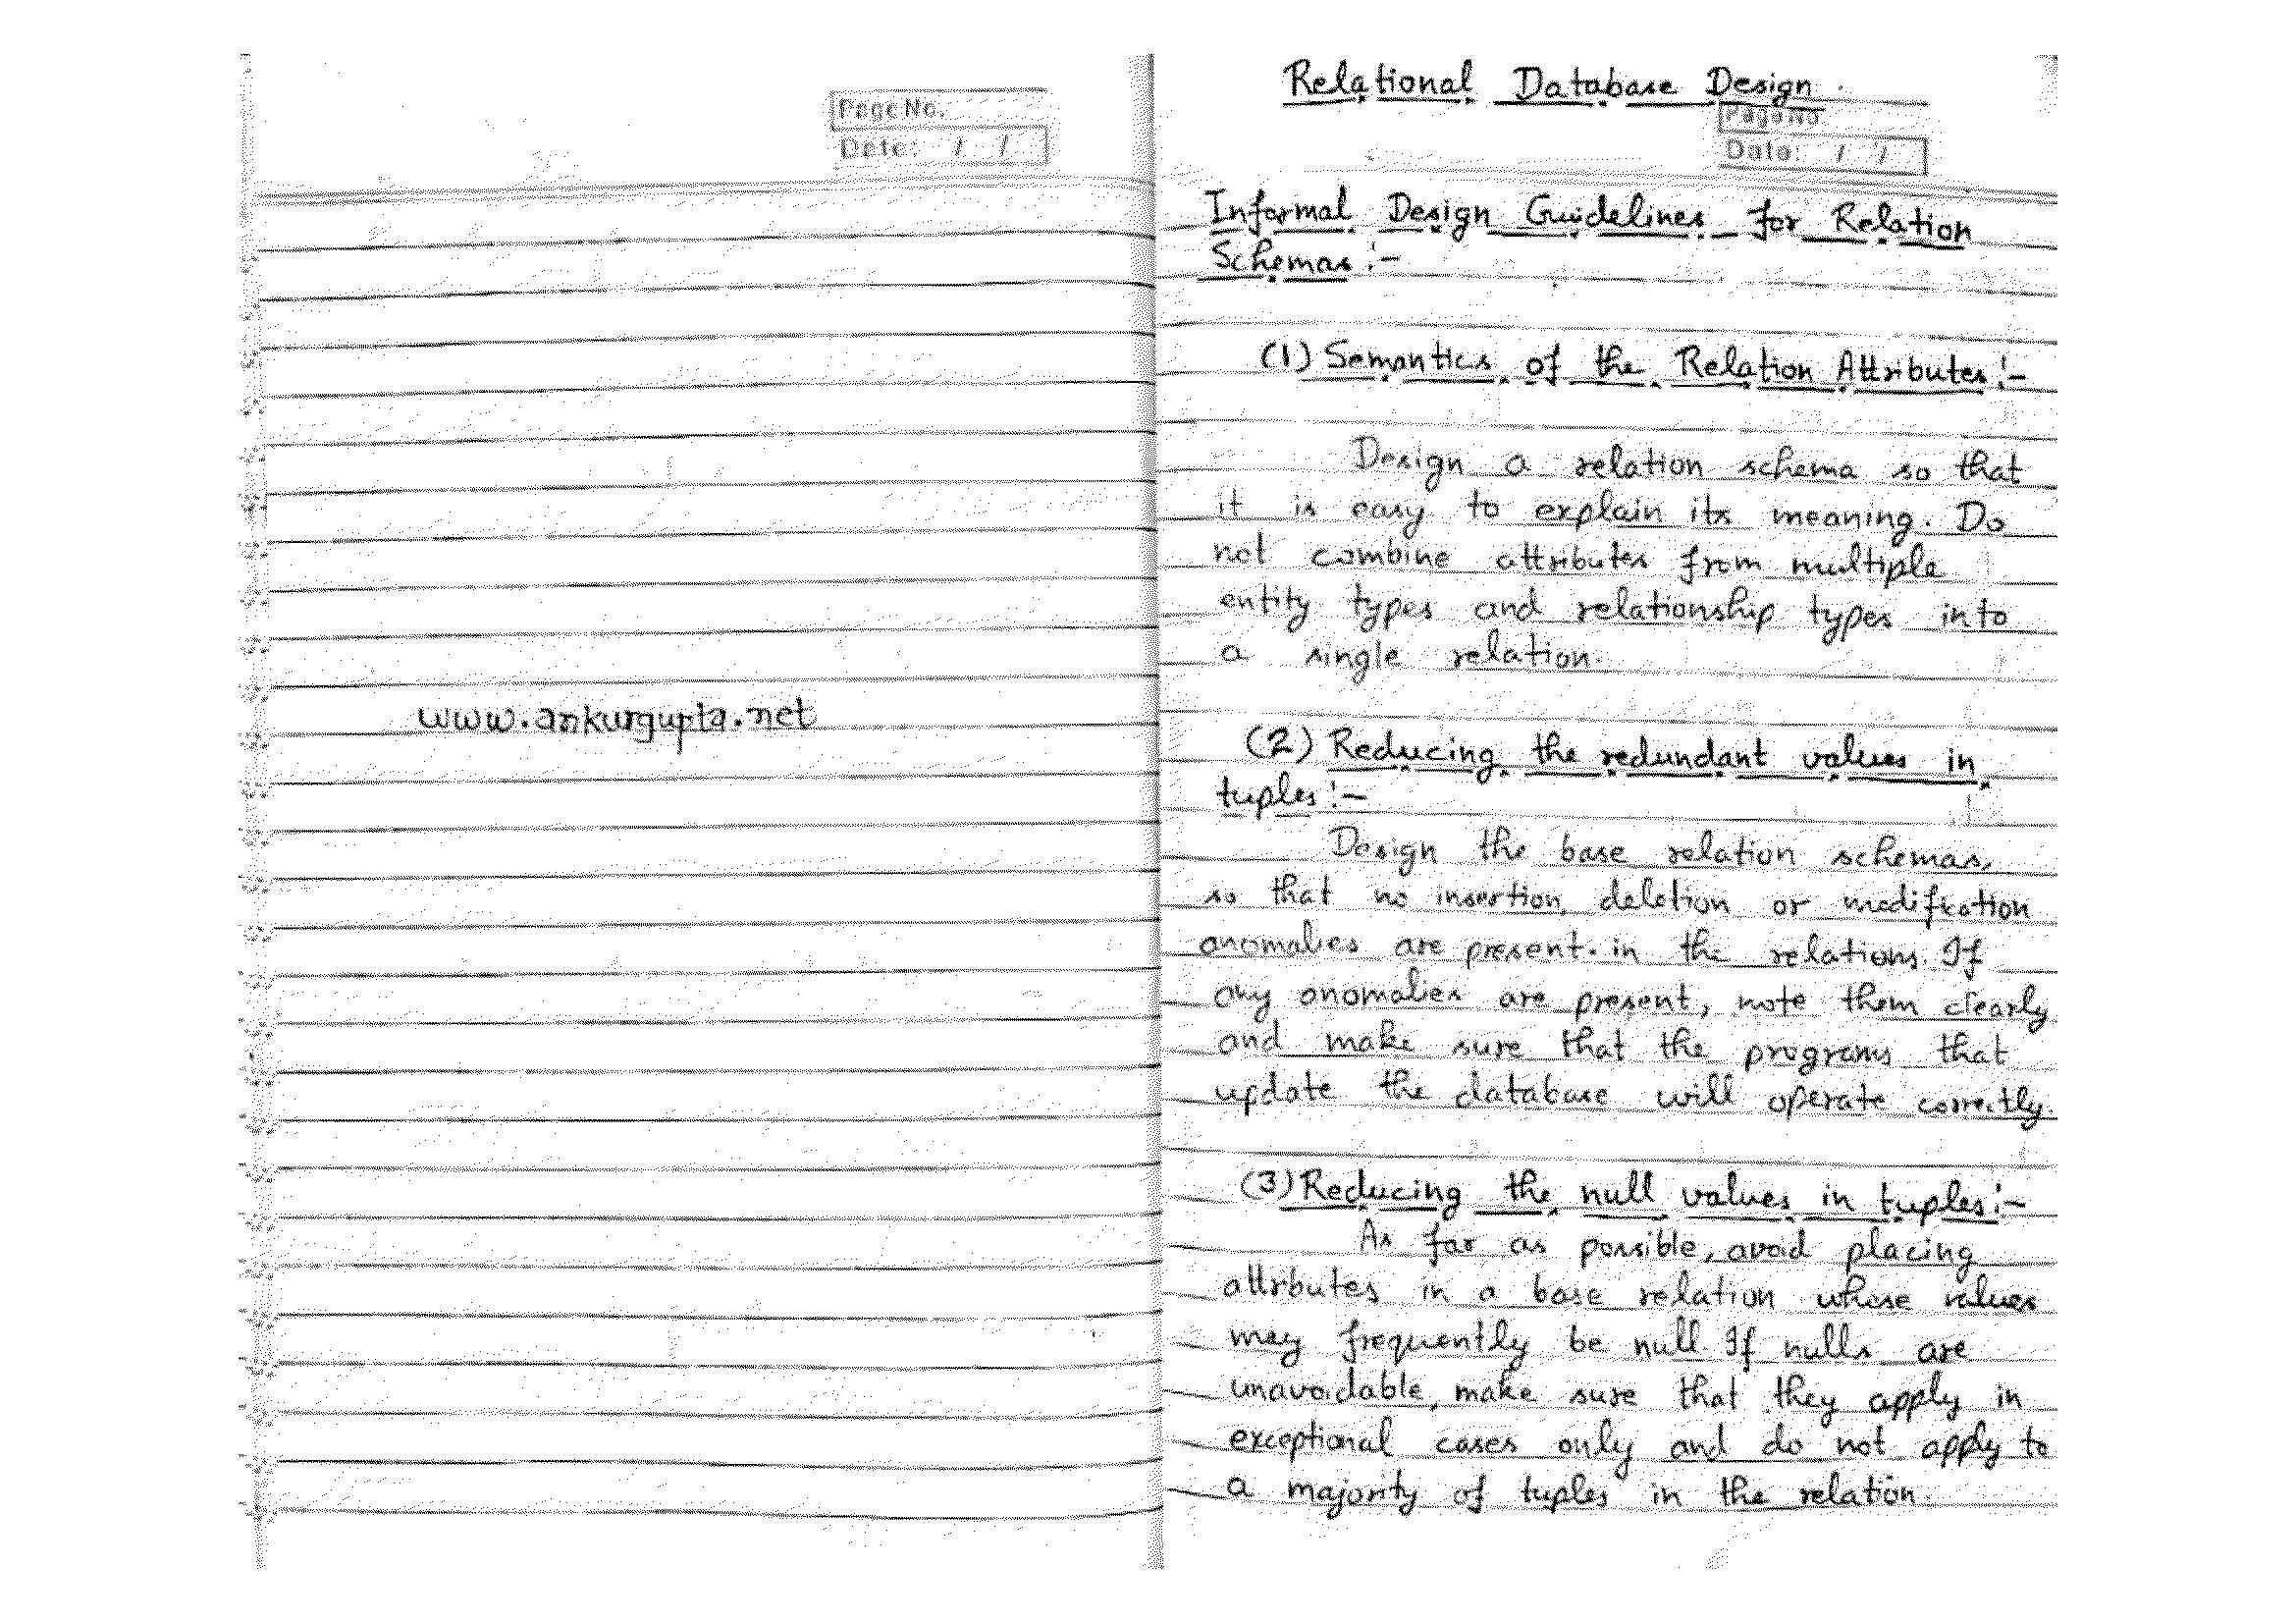 Page No.
Date: / /
www.ankurgupta.net
Relational Database Design.
Page No
Date: / /
Informal Design Guidelines for Relation
Schemas :-
(1) Semantics of the Relation Attributes :-
Design a relation schema so that
it is easy to explain its meaning. Do
not combine attributes from multiple
entity types and relationship types into
a single relation.
(2) Reducing the redundant values in
tuples :-
Design the base relation schemas,
so that no insertion, deletion or modification
anomalies are present in the relations. If
any anomalies are present, note them clearly
and make sure that the programs that
update the database will operate correctly.
(3) Reducing the null values in tuples :-
As far as possible, avoid placing
attributes in a base relation whose values
may frequently be null. If nulls are
unavoidable, make sure that they apply in
exceptional cases only and do not apply to
a majority of tuples in the relation.